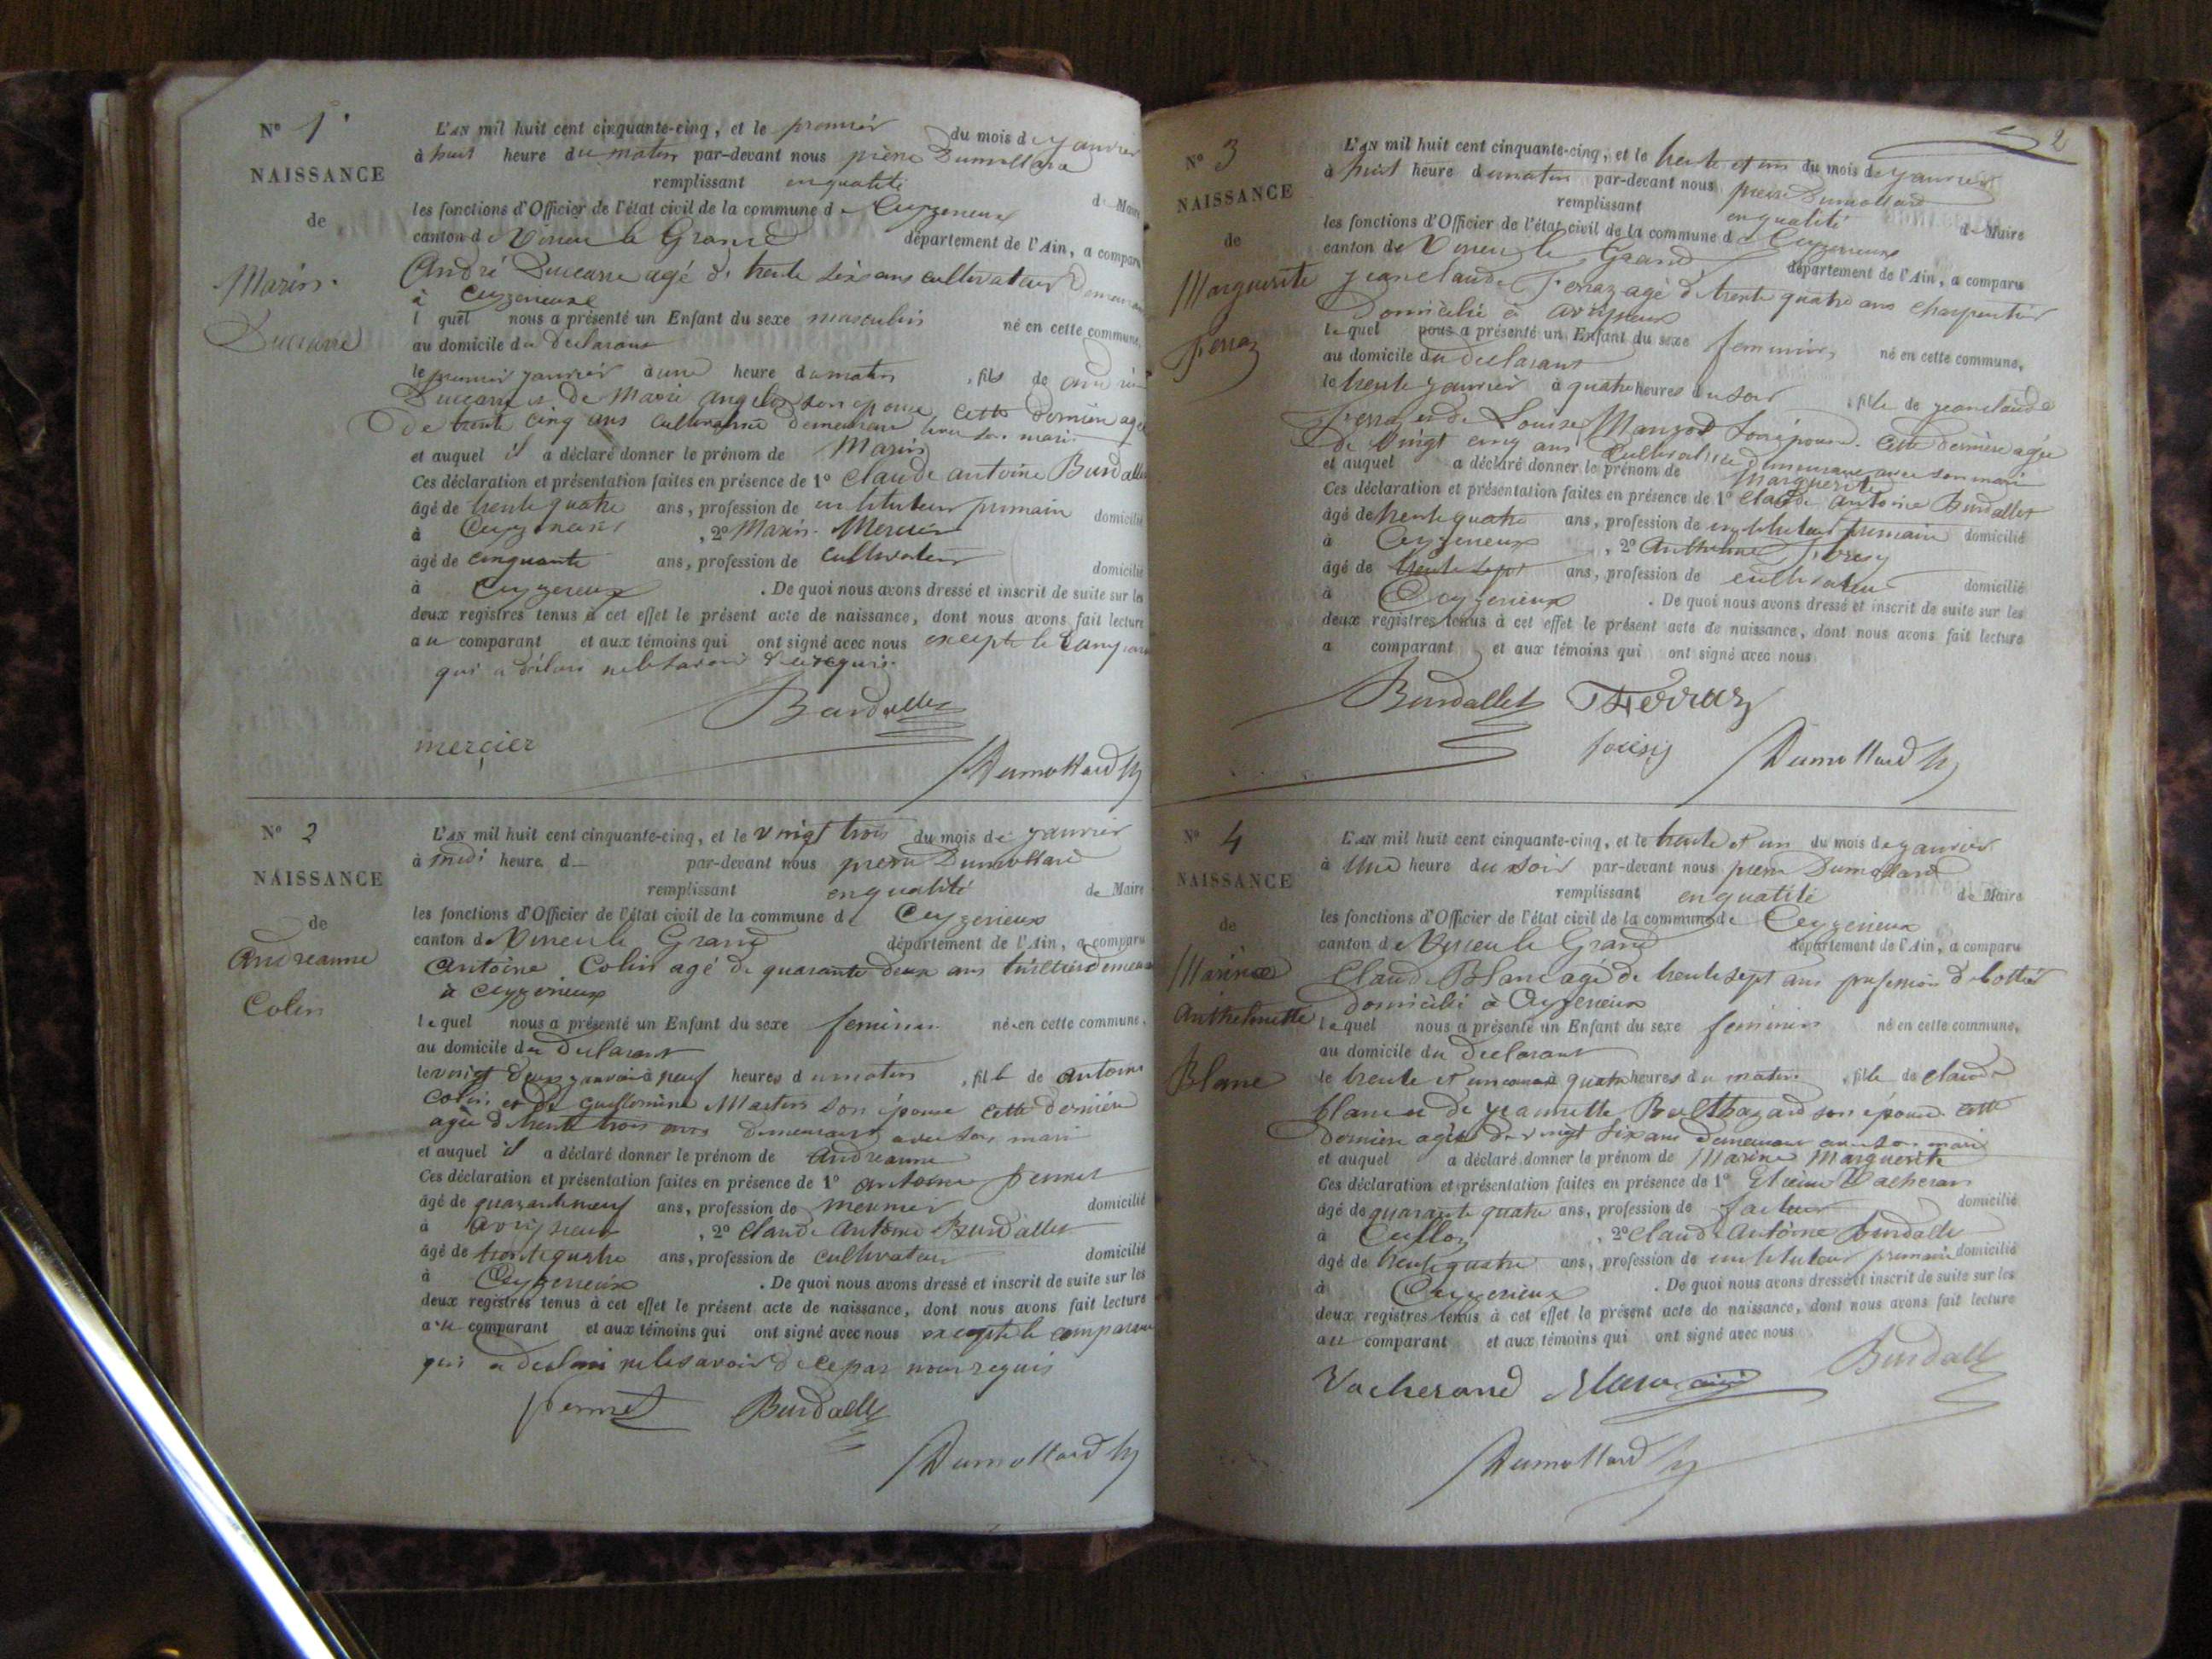 N° 1
NAISSANCE
de
Marin
Ducarre
L'AN mil huit cent cinquante-cinq, et le premier du mois de janvier
à huit heure du matin par-devant nous pierre Dumollard
remplissant en qualité de Maire
les fonctions d'Officier de l'état civil de la commune de Ceyzerieux
canton de Virieu le Grand département de l'Ain, a comparu
André Ducarre agé de trente six ans cultivateur
à Ceyzerieux
lequel nous a présenté un Enfant du sexe masculin né en cette commune,
au domicile du declarant
le premier janvier à une heure du matin, fils de andré
Ducarre et de Marie son epouse, cette dernière agée
de trente cinq ans cultivatrice demeurant avec son mari
et auquel il a déclaré donner le prénom de Marin
Ces déclaration et présentation faites en présence de 1° Claude antoine Burdallet
âgé de trente quatre ans, profession de instituteur primaire domicilié
à Ceyzerieux, 2° Marin Mercier
âgé de cinquante ans, profession de cultivateur domicilié
à Ceyzerieux. De quoi nous avons dressé et inscrit de suite sur les
deux registres tenus à cet effet le présent acte de naissance, dont nous avons fait lecture
au comparant et aux témoins qui ont signé avec nous excepté le comparant
qui a déclaré ne le savoir de ce requis
Burdallet
mercier
Dumollard
N° 2
NAISSANCE
de
Andreanne
Colin
L'AN mil huit cent cinquante-cinq, et le vingt trois du mois de janvier
à midi heure d par-devant nous pierre Dumollard
remplissant en qualité de Maire
les fonctions d'Officier de l'état civil de la commune de Ceyzerieux
canton de Virieu le Grand département de l'Ain, a comparu
Antoine Colin agé de quarante deux ans
à Ceyzerieux
lequel nous a présenté un Enfant du sexe feminin né en cette commune,
au domicile du declarant
le vingt deux janvier à neuf heures du matin, fille de antoine
Colin et de Guillemine Martin son épouse cette dernière
agée de trente trois ans demeurant avec son mari
et auquel il a déclaré donner le prénom de Andreanne
Ces déclaration et présentation faites en présence de 1° antoine pernet
âgé de quarante neuf ans, profession de meunier domicilié
à, 2° Claude Antoine Burdallet
âgé de trente quatre ans, profession de cultivateur domicilié
à Ceyzerieux. De quoi nous avons dressé et inscrit de suite sur les
deux registres tenus à cet effet le présent acte de naissance, dont nous avons fait lecture
au comparant et aux témoins qui ont signé avec nous excepté le comparant
qui a declaré ne le savoir de ce par nous requis
pernet Burdallet
Dumollard
2
N° 3
NAISSANCE
de
Marguerite
ferraz
L'AN mil huit cent cinquante-cinq, et le trente et un du mois de janvier
à huit heure du matin par-devant nous pierre Dumollard
remplissant en qualité de Maire
les fonctions d'Officier de l'état civil de la commune de Ceyzerieux
canton de Virieu le Grand département de l'Ain, a comparu
jean claude ferraz agé de trente quatre ans charpentier
Domicilié à
lequel nous a présenté un Enfant du sexe feminin né en cette commune,
au domicile du declarant
le trente janvier à quatre heures du soir, fille de jean claude
ferraz et de Louise son épouse. Cette dernière agée
de vingt cinq ans cultivatrice demeurant avec son mari
et auquel a déclaré donner le prénom de Marguerite
Ces déclaration et présentation faites en présence de 1° Claude antoine Burdallet
âgé de trente quatre ans, profession de instituteur primaire domicilié
à Ceyzerieux, 2°
âgé de trente sept ans, profession de cultivateur domicilié
à Ceyzerieux. De quoi nous avons dressé et inscrit de suite sur les
deux registres tenus à cet effet le présent acte de naissance, dont nous avons fait lecture
a comparant et aux témoins qui ont signé avec nous
Burdallet ferraz
Dumollard
N° 4
NAISSANCE
de
Marine
Anthelmette
Blanc
L'AN mil huit cent cinquante-cinq, et le trente et un du mois de janvier
à Une heure du soir par-devant nous pierre Dumollard
remplissant en qualité de Maire
les fonctions d'Officier de l'état civil de la commune de Ceyzerieux
canton de Virieu le Grand département de l'Ain, a comparu
Claude Blanc agé de trente sept ans profession de bottier
domicilié à Ceyzerieux
lequel nous a présenté un Enfant du sexe feminin né en cette commune,
au domicile du declarant
le trente et un à quatre heures du matin, fille de claude
blanc et de jeannette Balthazard son épouse cette
dernière agée de vingt six ans demeurant avec son mari
et auquel a déclaré donner le prénom de Marine Marguerite
Ces déclaration et présentation faites en présence de 1° Etienne Vacherand
âgé de quarante quatre ans, profession de facteur domicilié
à Culloz, 2° Claude Antoine burdallet
âgé de trente quatre ans, profession de instituteur primaire domicilié
à Ceyzerieux. De quoi nous avons dressé et inscrit de suite sur les
deux registres tenus à cet effet le présent acte de naissance, dont nous avons fait lecture
au comparant et aux témoins qui ont signé avec nous
Vacherand Burdallet
Dumollard